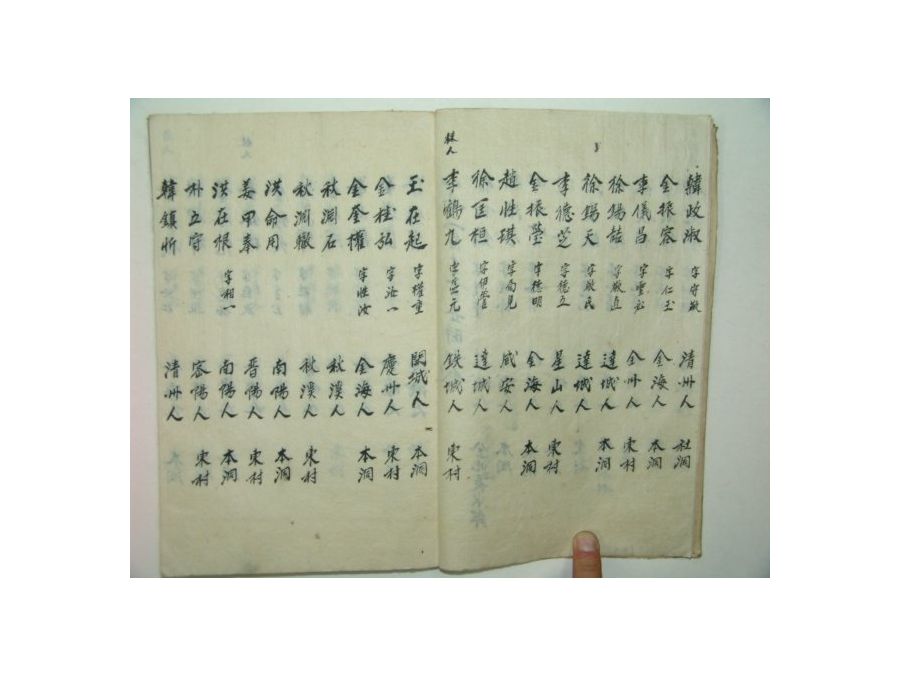 韓政淑 字守敬 清州人 社洞
金振容 字仁玉 金海人 本洞
李儀昌 金州人 東村
徐錫喆 字敬直 達城人 本洞
徐錫天 字敬民 達城人
李德芝 字穂立 星山人 東村
金振瑩 字穂明 金海人 本洞
趙性琪 字南見 咸安人
徐匡桓 達城人
李鶴九 鉄城人 東村
玉在起 字權重 開城人 本洞
金桂弘 字汝一 慶州人 東村
金奎權 字性汝 金海人 本洞
秋淵石 秋溪人
秋淵轍 秋溪人 東村
洪命用 南陽人 本洞
姜甲奉 晋陽人 東村
洪在根 字相一 南陽人 本洞
朴立守 密陽人 東村
韓鎮昕 清州人